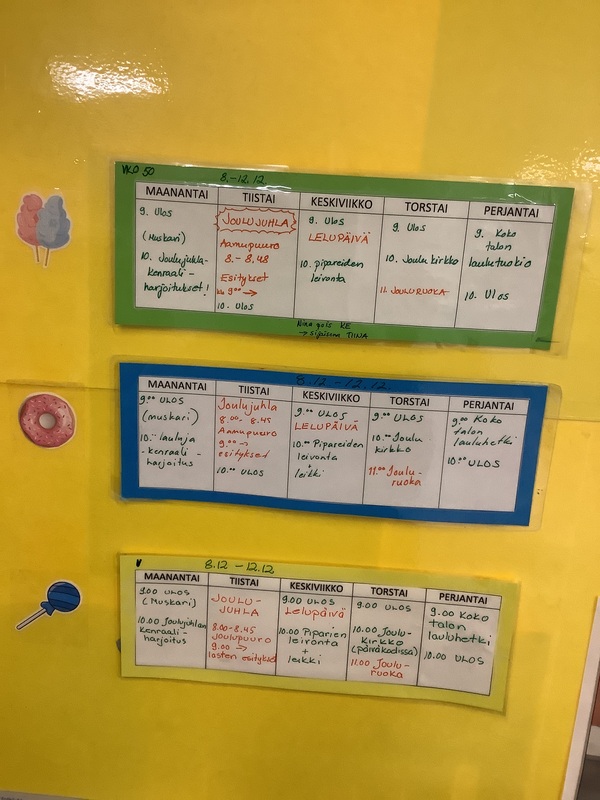 VKO 50
8.-12.12
MAANANTAI
9. Ulos
(Muskari)
10. Joulujuhla-
kenraali-
harjoitukset!
TIISTAI
JOULUJUHLA
Aamupuuro
8.- 8.45
Esitykset
klo 9⁰⁰ →
10. Ulos
KESKIVIIKKO
9. Ulos
LELUPÄIVÄ
10. Pipareiden
leivonta
TORSTAI
9. Ulos
10. Joulukirkko
11. JOULURUOKA
PERJANTAI
9. Koko
talon
laulutuokio
10. Ulos
Nina pois KE
→ sijaisena TIINA
8.12 - 12.12.
MAANANTAI
9⁰⁰ ULOS
(muskari)
10.⁰⁰ lauluja
- kenraali -
harjoitus
TIISTAI
Joulujuhla
8.00 - 8.45
Aamupuuro
9⁰⁰ →
esitykset
10.⁰⁰ ULOS
KESKIVIIKKO
9.⁰⁰ ULOS
LELUPÄIVÄ
10.⁰⁰ Pipareiden
leivonta
+
leikki
TORSTAI
9.⁰⁰ ULOS
10.⁰⁰ Joulu-
kirkko
11.⁰⁰ Joulu-
ruoka
PERJANTAI
9.⁰⁰ Koko
talon
lauluhetki
10.⁰⁰ ULOS
8.12 - 12.12
MAANANTAI
9.00 ULOS
(Muskari)
10.00 Joulujuhlan
kenraali-
harjoitus
TIISTAI
JOULU-
JUHLA
8.00-8.45
Joulupuuro
9.00 →
lasten esitykset
KESKIVIIKKO
9.00 ULOS
Lelupäivä
10.00 Piparien
leivonta
+
leikki
TORSTAI
9.00 ULOS
10.00 Joulu-
kirkko
(päiväkodissa)
11.00 Joulu-
ruoka
PERJANTAI
9.00 Koko
talon
lauluhetki
10.00 ULOS